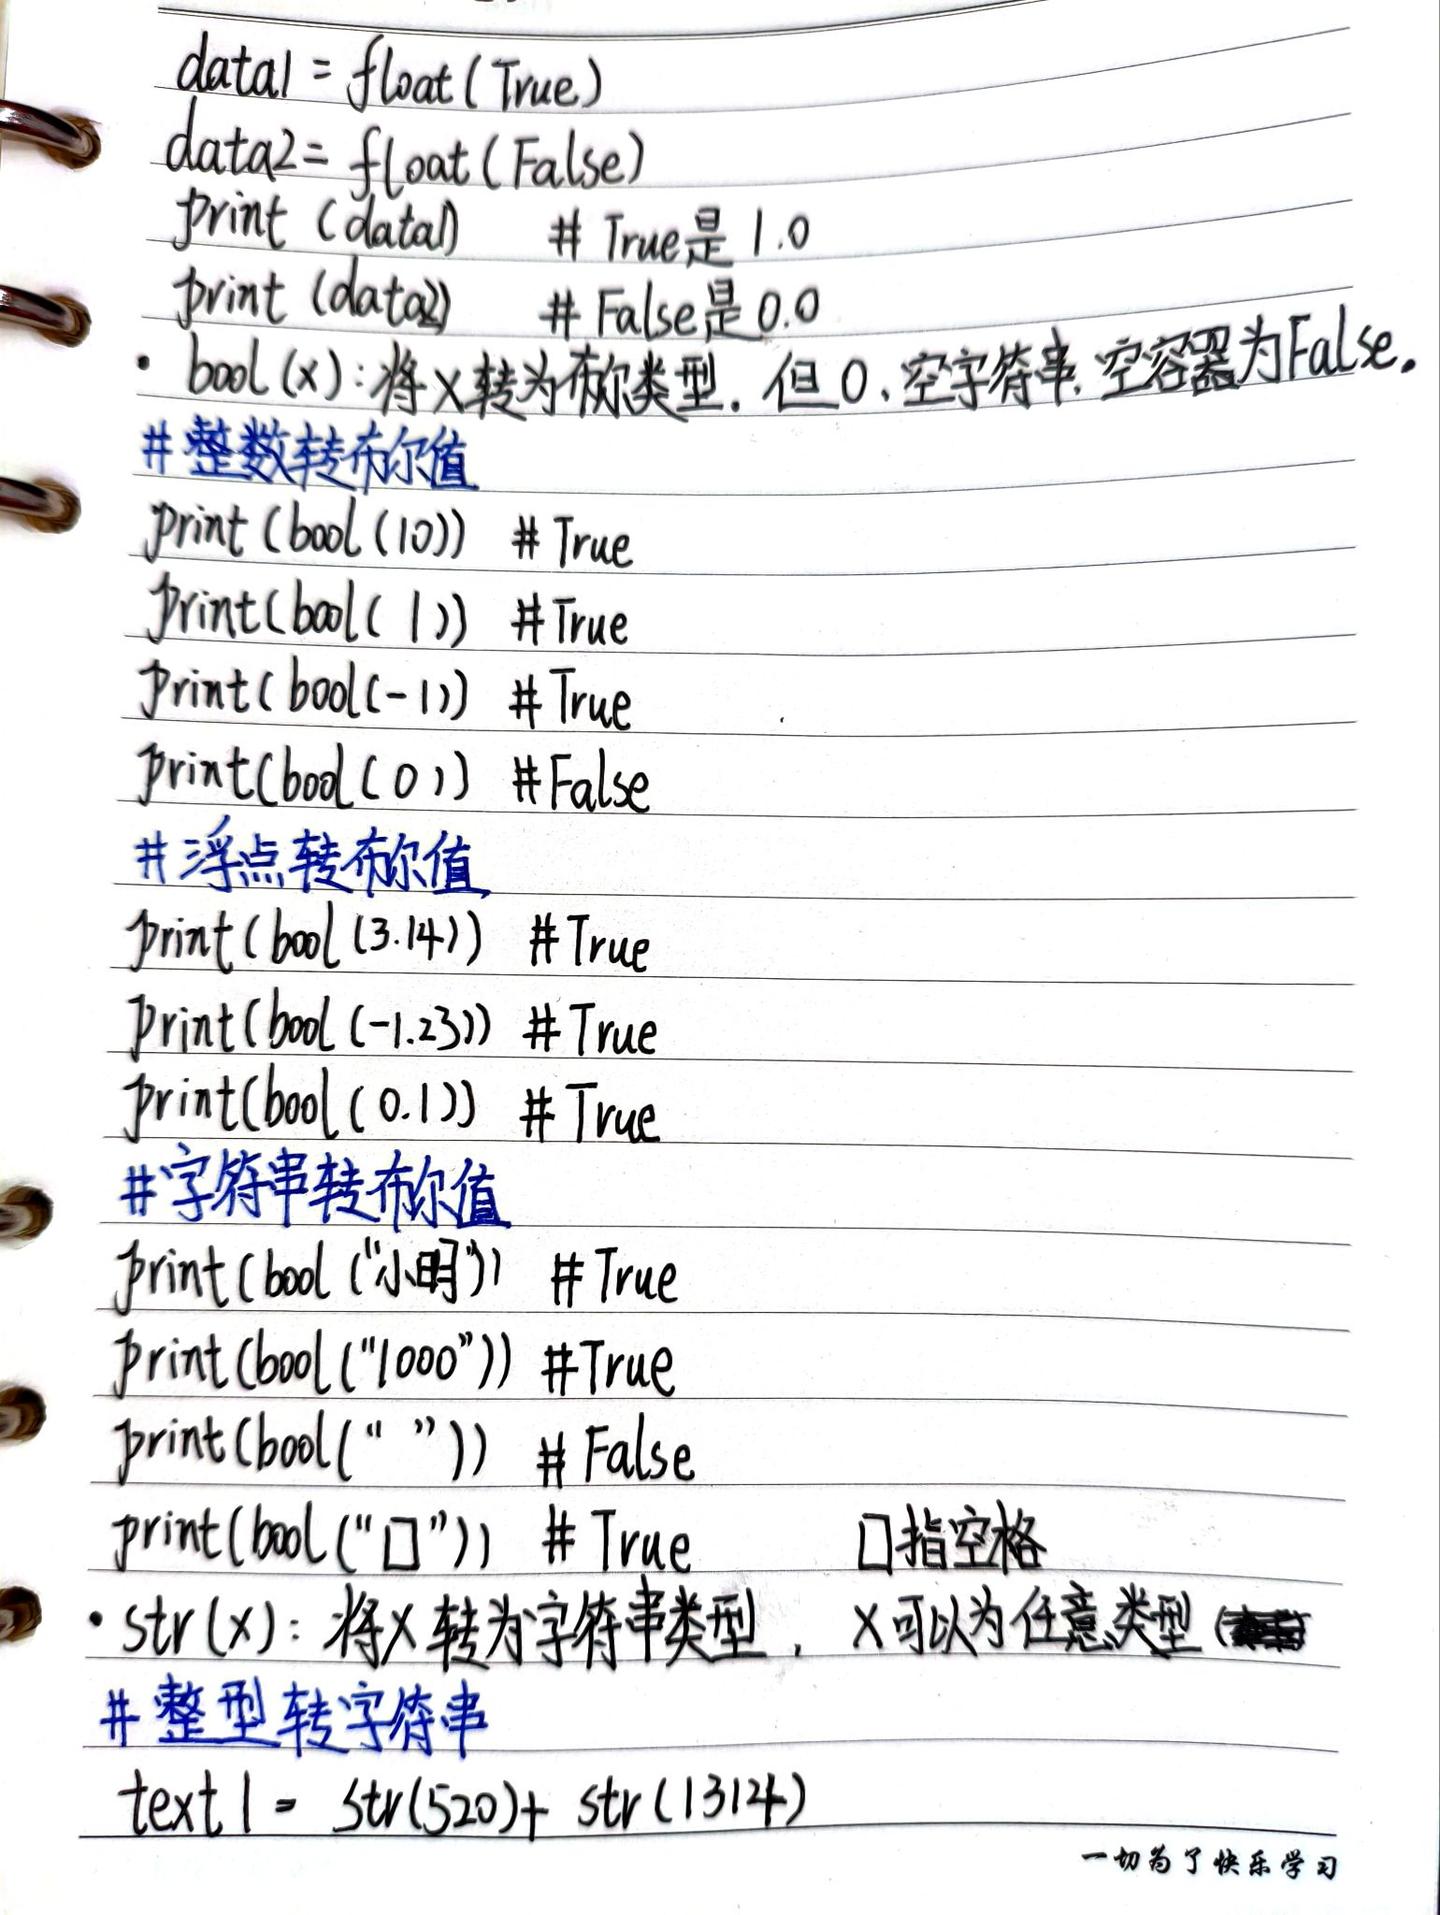 data1 = float(True)
data2 = float(False)
print (data1) # True是 1.0
print (data2) # False是 0.0
• bool(x): 将X转为布尔类型. 但0、空字符串、空容器为False.
# 整数转布尔值
print(bool(10)) # True
print(bool(1)) # True
print(bool(-1)) # True
print(bool(0)) #False
# 浮点转布尔值
print(bool(3.14)) # True
print(bool(-1.23)) # True
print(bool(0.1)) # True
#字符串转布尔值
print(bool("小明")) # True
print(bool("1000")) #True
print(bool(" ")) # False
print(bool("口")) # True 口指空格
• str(x): 将X转为字符串类型, X可以为任意类型(
# 整型转字符串
text1 = str(520)+ str(1314)
一切为了快乐学习